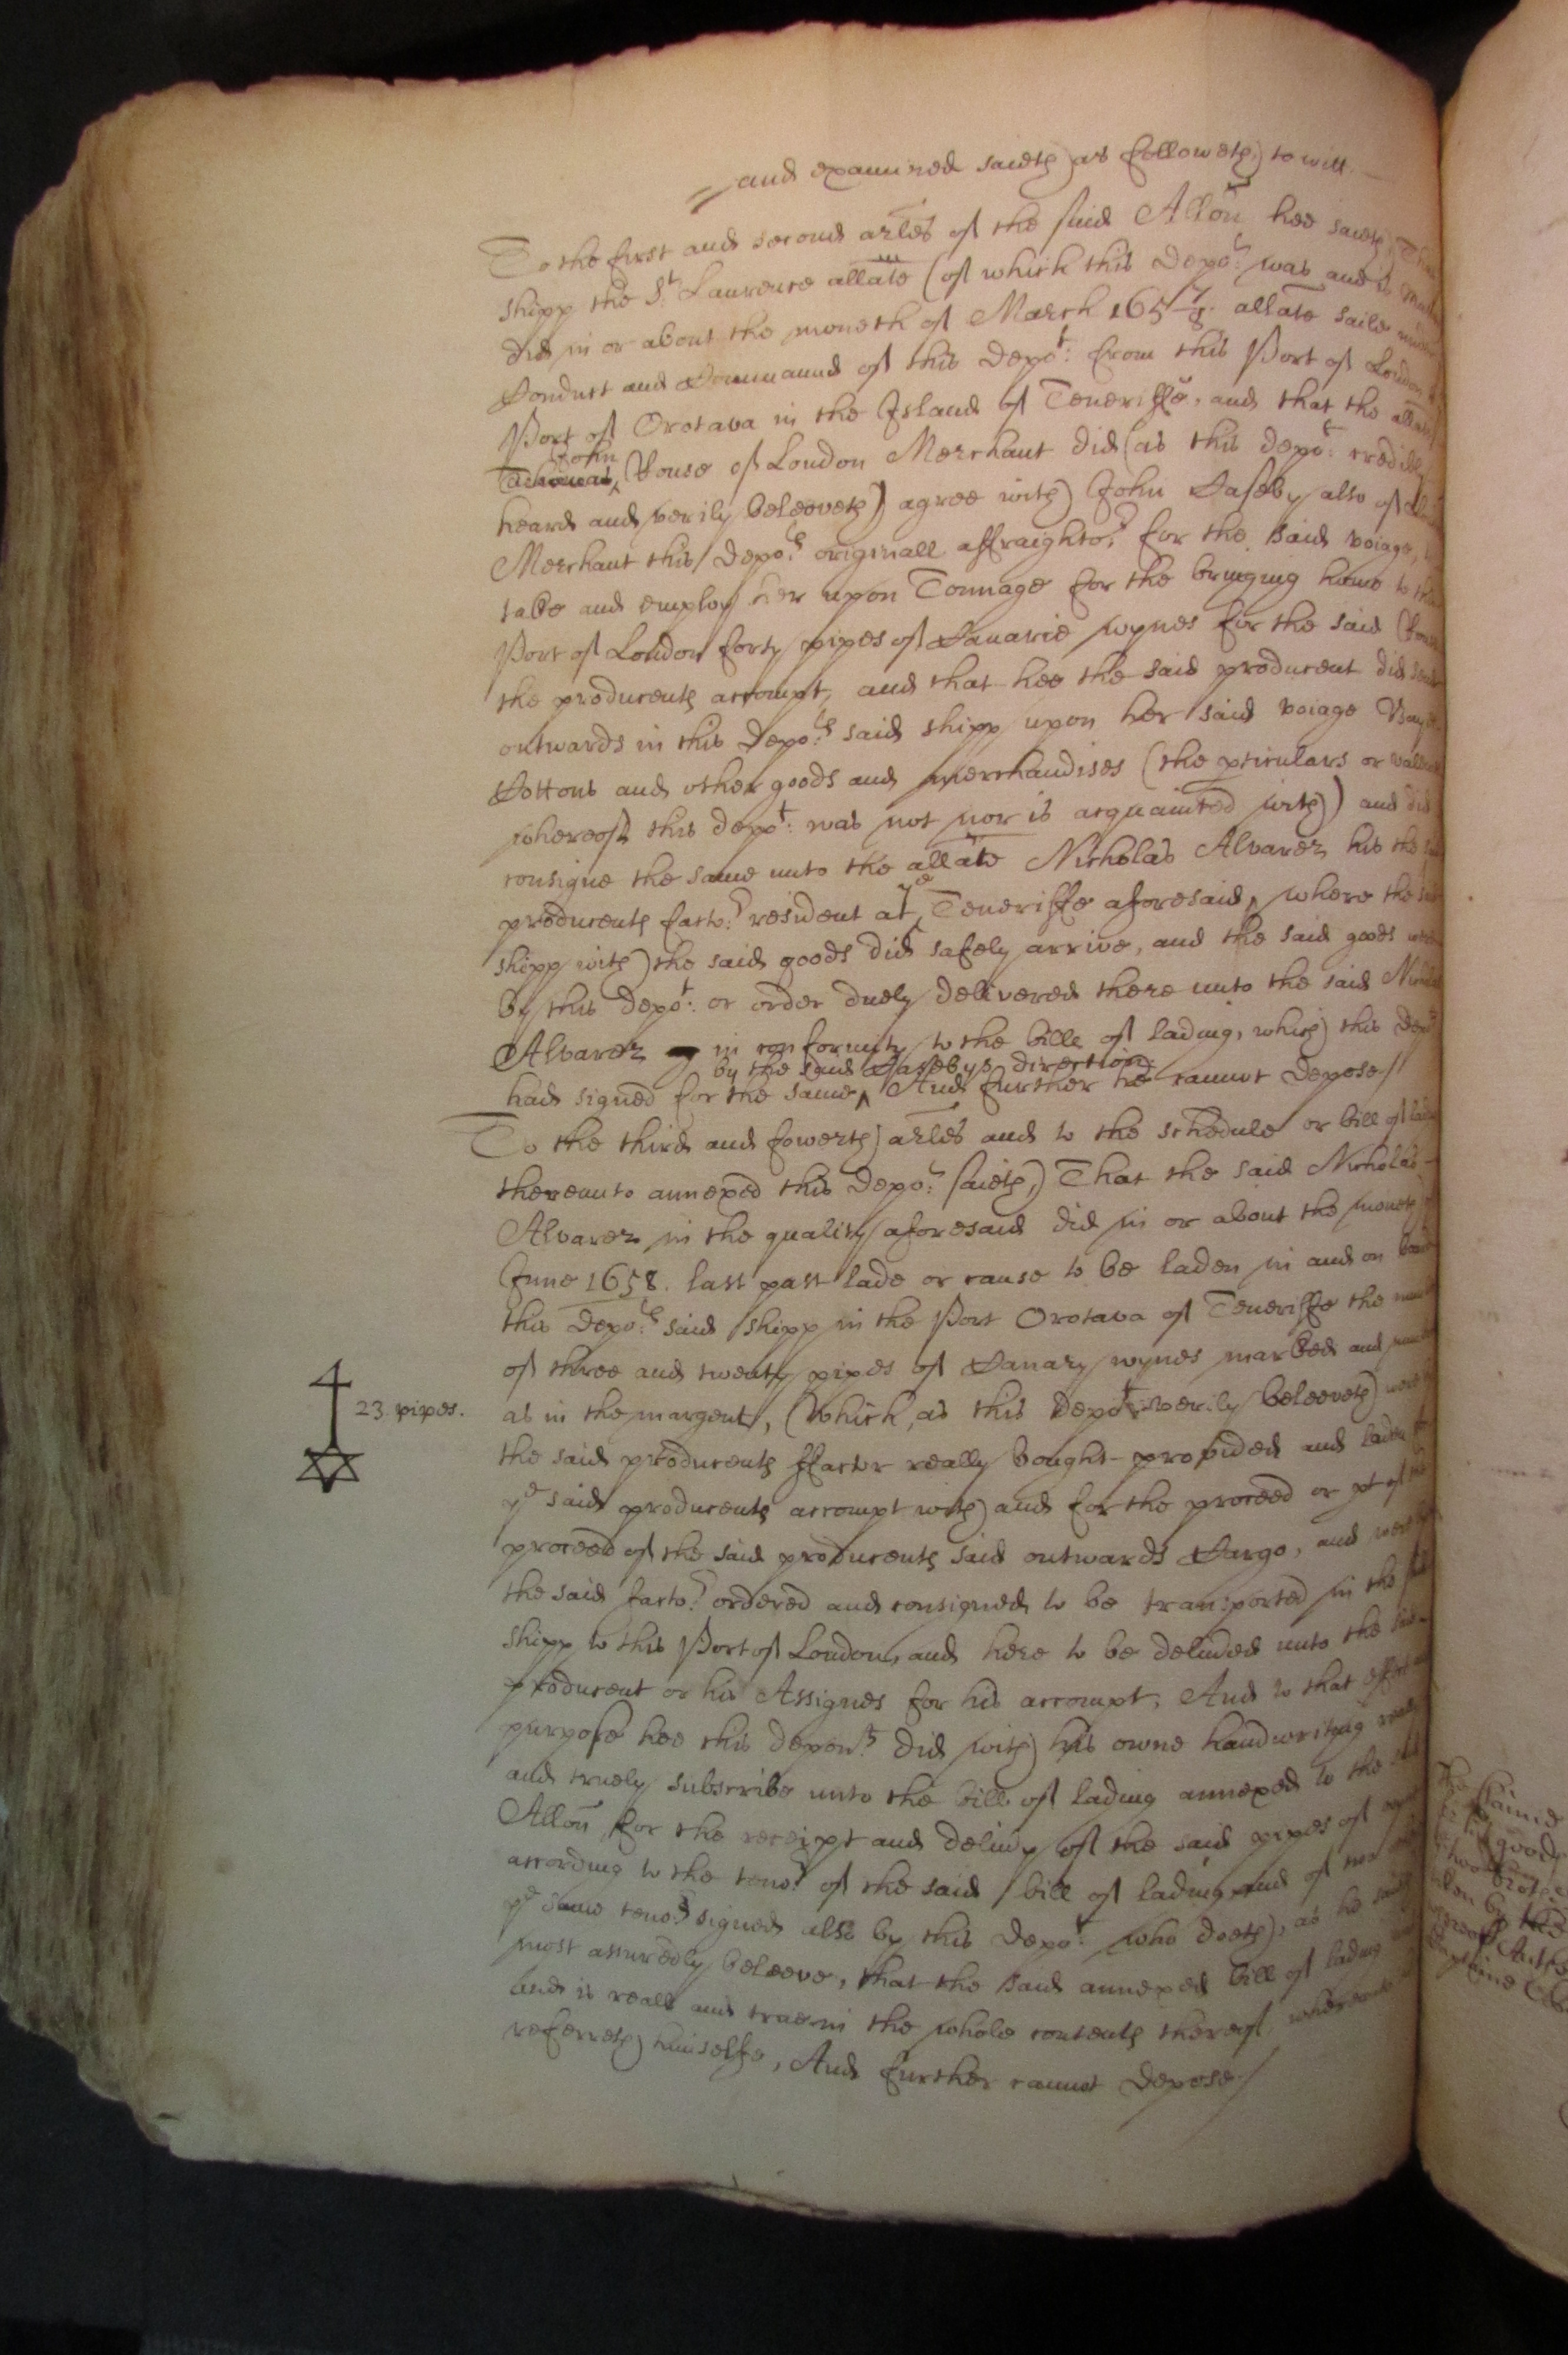 and examined saieth as followeth, to witt.
To the first and second arles of the said Allon hee saieth That
shipp the St. Laurence allate (of which this depot. was and is
did in or about the moneth of March 1657/8. allate saile under
Conduct and Commaund of this depot. from this Port of London
Port of Orotava in the Island of Teneriffe, and that the allate
John
Rouse of London Merchant did (as this depot. credibly
heard and verily beleeveth) agree with John Caseby also of
Merchant this depots. originall affraightor. for the said voiage,
take and employ her upon Tonnage for the bringing home to this
Port of London forty pipes of Canarie wynes for the said Rouse
the producents accompt, and that hee the said producent did send
outwards in this depots. said shipp upon her said voiage Bayes
Cottons and other goods and merchandises (the pticulars or vallue
whereof this depot. was not nor is acquainted with) and did
consigne the same unto the allate Nicholas Alvarez his the said
producents factor. resident at ye Teneriffe aforesaid, where the said
shipp with the said goods did safely arrive, and the said goods were
by this depot. or order duely delivered there unto the said Nicholas
Alvarez in conformity to the bille of lading, which this depot.
by the said Casebys direction.
had signed for the same, And further he cannot depose./
To the third and fowerth arles and to the schedule or bill of lading
thereunto annexed this depot. saieth, That the said Nicholas
Alvarez in the quality aforesaid did in or about the moneth of
June 1658. last past lade or cause to be laden in and on board
this depots. said shipp in the Port Orotava of Teneriffe the
of three and twenty pipes of Canary wynes marked and
23 pipes.
as in the margent, (which, as this depot. verily beleeveth) were by
the said producents ffactor really bought provided and laden for
ye said producents accompt with and for the proceed or pt of the
proceed of the said producents said outwards Cargo, and were by
the said factor. ordered and consigned to be transported in the said
shipp to this Port of London, and here to be delivded unto the said
producent or his Assignes for his accompt, And to that effect and
purpose hee this depont. did with his owne handwriting
and truely subscribe unto the bill of lading annexed to the said
Allon for the receipt and delivy of the said pipes of
according to the tenor. of the said bill of lading and of two
ye same tenor. signed also by this depot. who doeth, as he saith
most assuredly beleeve, that the said annexed bill of lading
and is reall and true in the whole contents thereof whereunto
referreth himselfe, And further cannot depose./
goods